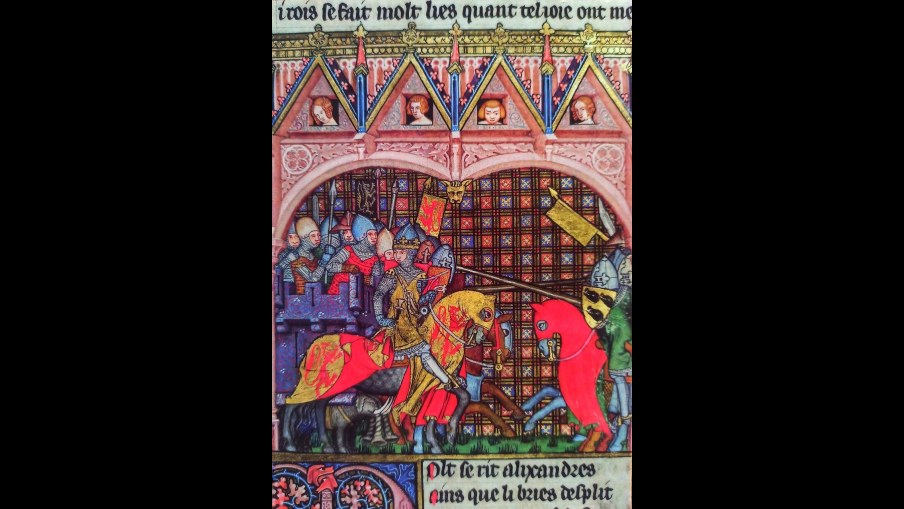 i rois se fait molt lies quant tel ioie ont me
olt se rit alixandres
ains que li bries desplit